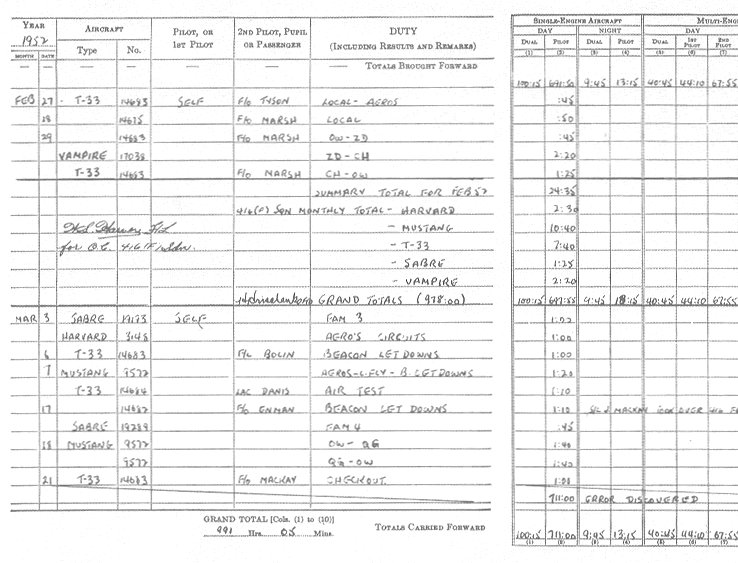 YEAR AIRCRAFT PILOT, OR 2ND PILOT, PUPIL DUTY SINGLE-ENGINE AIRCRAFT MULTI-ENG
1952 1ST PILOT OR PASSENGER (INCLUDING RESULTS AND REMARKS) DAY NIGHT DAY
MONTH DATE Type No. DUAL PILOT DUAL PILOT DUAL 1ST PILOT 2ND PILOT
(1) (2) (3) (4) (5) (6) (7)
— — — — — — TOTALS BROUGHT FORWARD
100:15 691:50 9:45 13:15 40:45 44:10 67:55
FEB 27 T-33 14683 SELF F/O TYSON LOCAL - AEROS :45
28 14675 F/O MARSH LOCAL :50
29 14683 F/O MARSH OW-ZD :45
VAMPIRE 17038 ZD-CH 2:20
T-33 14683 F/O MARSH CH-OW 1:25
SUMMARY TOTAL FOR FEB 52 24:35
416(F) SQN MONTHLY TOTAL - HARVARD 2:30
- MUSTANG 10:40
for O.C. 416(F) Sdn. - T-33 7:40
- SABRE 1:25
- VAMPIRE 2:20
GRAND TOTALS (978:00) 100:15 9:45 13:15 40:45 44:10 67:55
MAR 3 SABRE SELF FAM 3 1:00
HARVARD AERO'S CIRCUITS 1:00
6 T-33 14683 F/L BOLIN BEACON LET DOWNS 1:00
7 MUSTANG 9577 AEROS-L.FLY-B.LETDOWNS 1:20
T-33 14684 LAC DAVIS AIR TEST 1:10
17 14682 F/O ENMAN BEACON LET DOWNS 1:10 MACKAY TOOK OVER 416
SABRE 19289 FAM 4 :45
18 MUSTANG 9577 OW-QG 1:40
9577 QG-OW 1:40
21 T-33 14683 F/O MACKAY CHECKOUT 1:00
711:00 ERROR DISCOVERED
GRAND TOTAL [Cols. (1) to (10)] TOTALS CARRIED FORWARD
991 Hrs. 05 Mins. 100:15 711:00 9:45 13:15 40:45 44:10 67:55
(1) (2) (3) (4) (5) (6) (7)